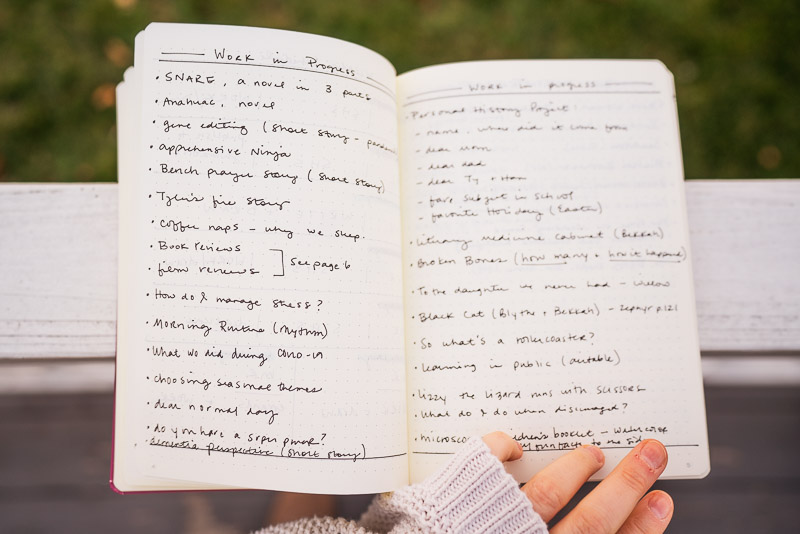 Work in Progress
• SNARE, a novel in 3 parts
• Anahuac, novel
• gene editing (short story -
• apprehensive Ninja
• Bench prayer story (short story)
• Tyen's fire story
• coffee naps - why we sleep.
• Book reviews
• film reviews
see page 6
• How do I manage stress?
• Morning Routine (rhythm)
• What we did during COVID-19
• choosing seasonal themes
• dear normal day
• do you have a super power?
• dementia perspective (short story)
Work in progress
• Personal History Project
- name. where did it come from
- dear mom
- dear dad
- dear Ty + Ham
- fave subject in school
- favorite Holiday (Easter)
• Literary medicine cabinet (Bekkah)
• Broken Bones (how many + how it happened)
• To the daughter we never had - willow
• Black Cat (Blythe + Bekkah) - zephyr p.121
• So what's a rollercoaster?
• learning in public (
• Lizzy the Lizard runs with scissors
• What do I do when discouraged?
• microsco booklet - watercolor
to the side